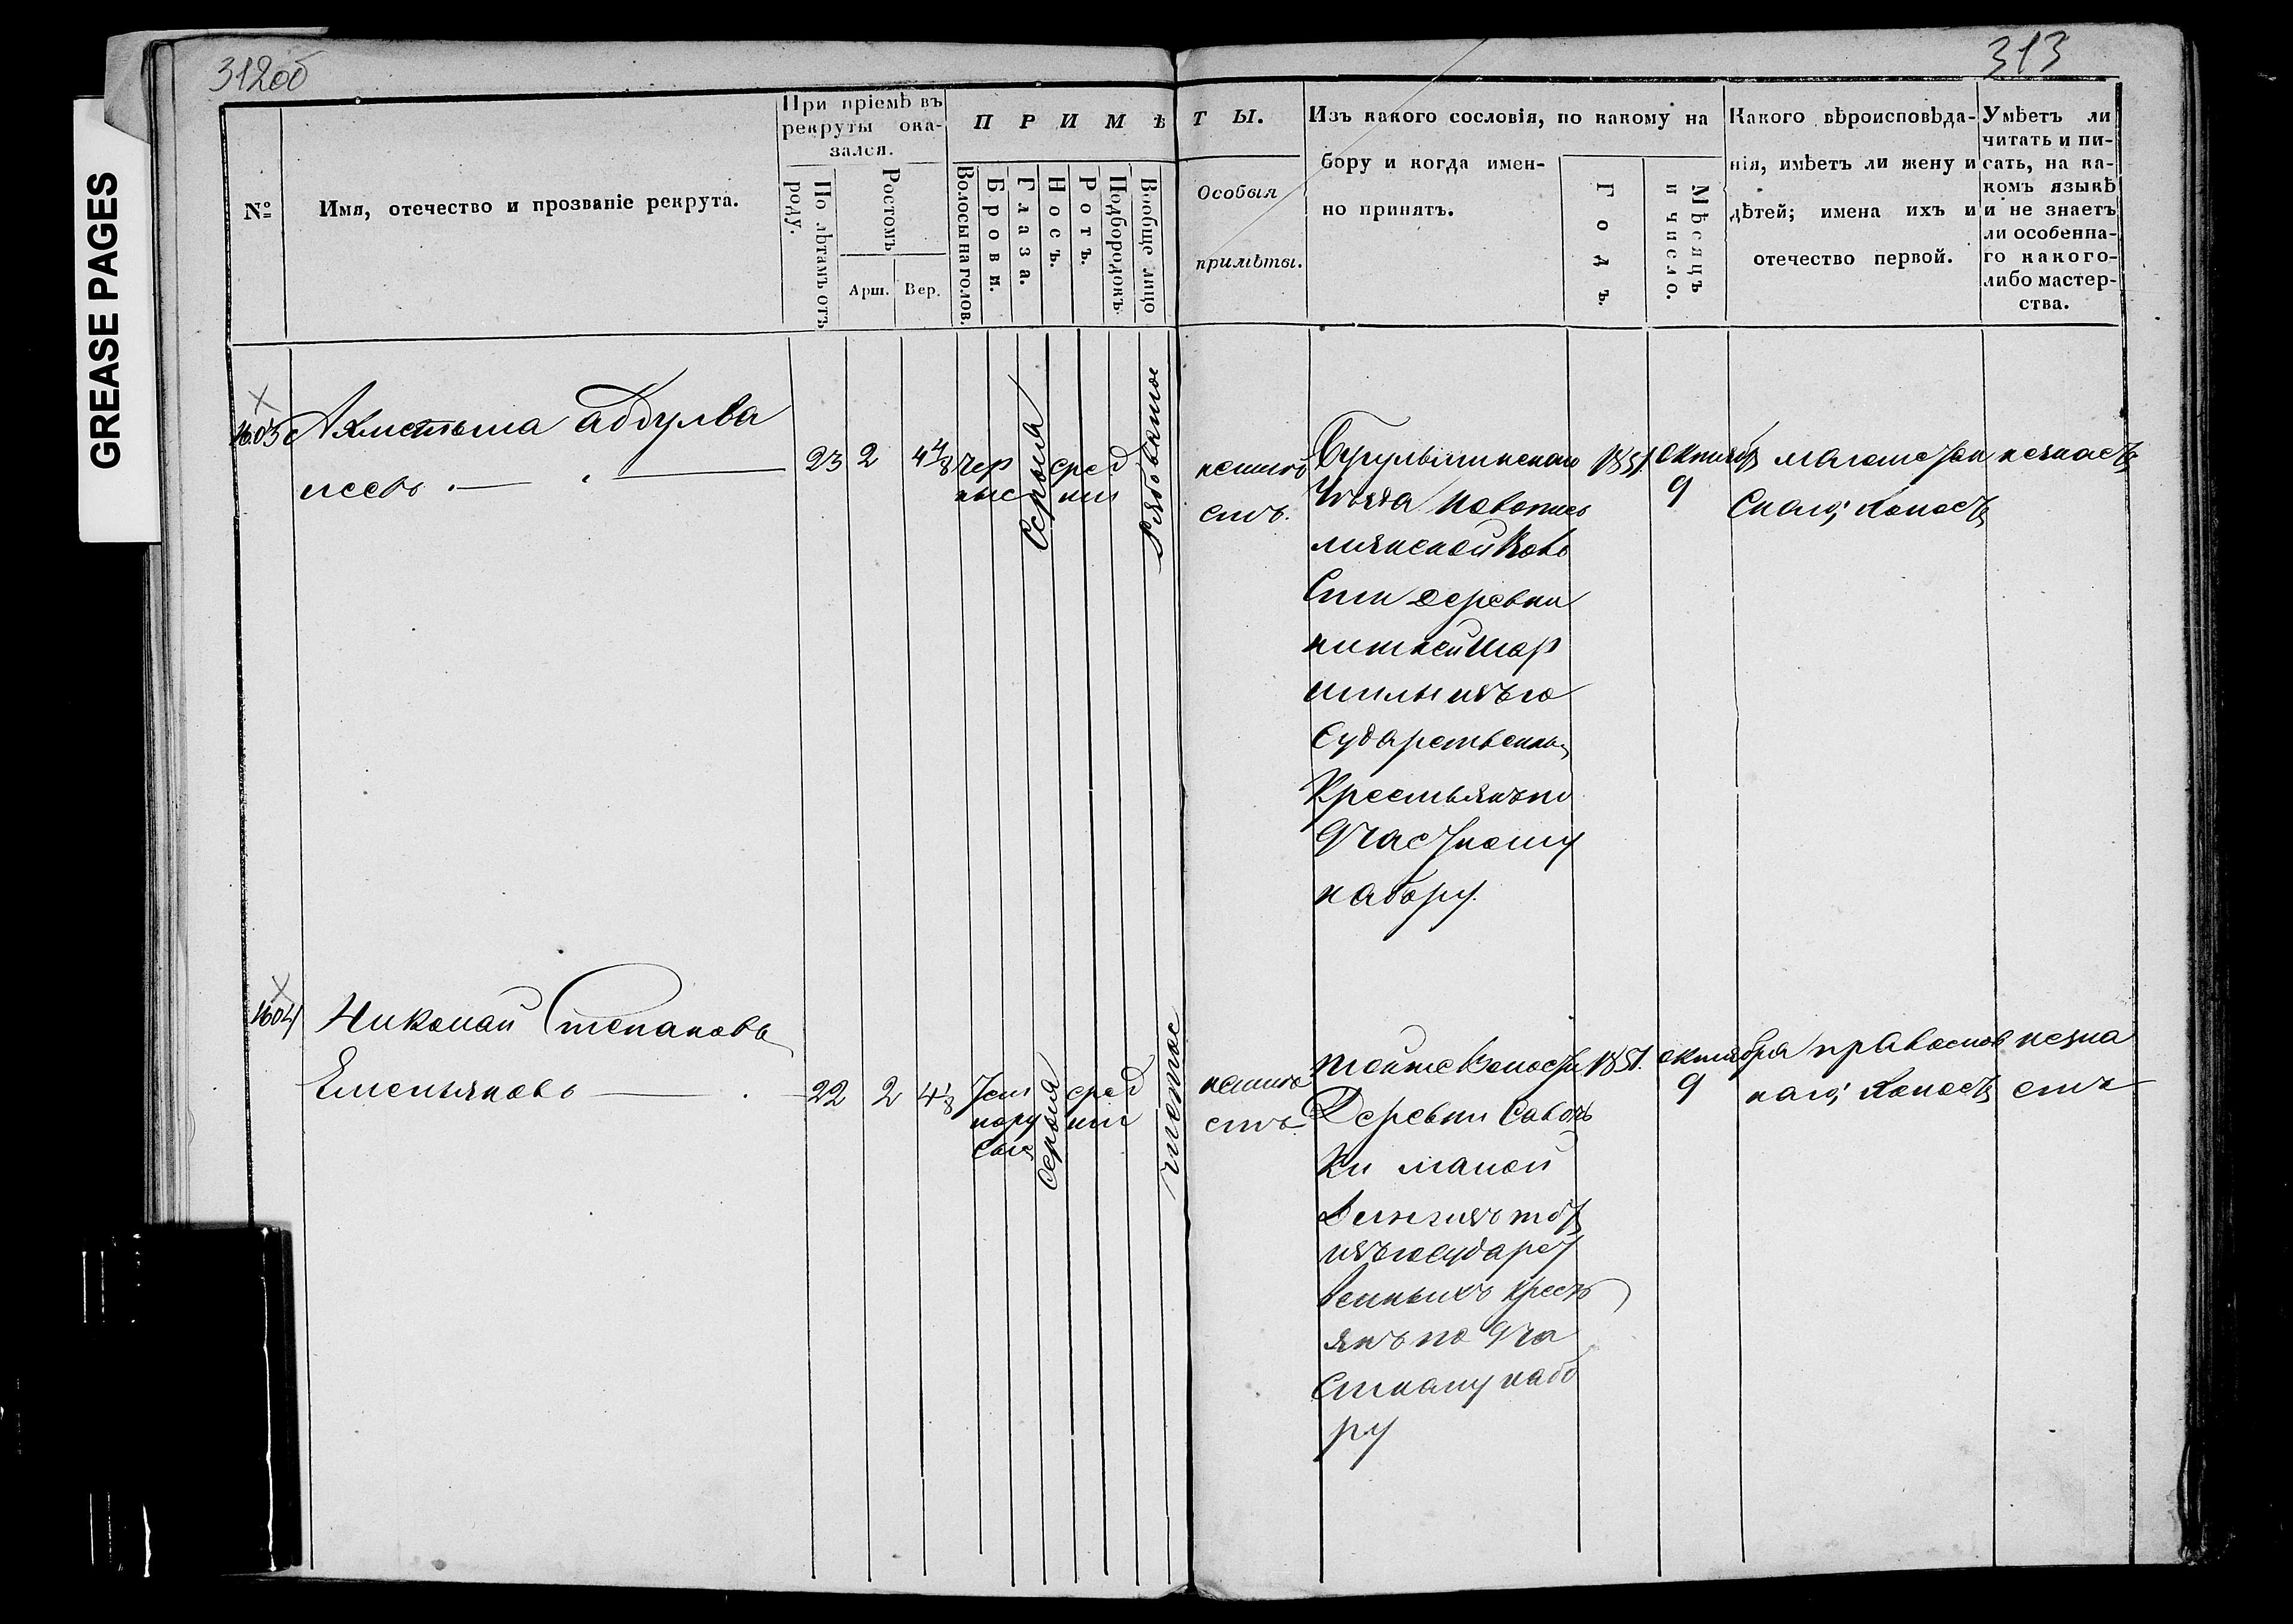 312об
313
GREASE PAGES
№
Имя, отечество и прозваніе рекрута.
При пріемѣ въ
рекруты ока-
зался.
По лѣтамъ отъ
роду.
Ростомъ
Арш. Вер.
П Р И М Ѣ Т Ы.
Волосы на голов.
Брови.
Глаза.
Носъ.
Ротъ.
Подбородокъ
Вообще лицо
Особыя
примѣты.
Изъ какого сословія, по какому на
бору и когда имен-
но принятъ.
Годъ.
Мѣсяцъ
и число.
Какого вѣроисповѣда-
нія, имѣетъ ли жену и
дѣтей; имена ихъ и
отечество первой.
Умѣетъ ли
читать и пи-
сать, на ка-
комъ языкѣ
и не знаетъ
ли особенна-
го какого-
либо мастер-
ства.
1603
абдулва
леевъ
23 2 4 4/8
чер
ные
Серыя
сред
нии
Рябоватое
неимѣ
етъ.
Бугульминскаго
Уезда
Воло
Сти деревни
нижней Шар
шилы изъ го
сударственны
Крестьянъ по
Участному
набору.
1851
октябр
9
магометан
Скаго, Холостъ
незнаетъ
1604
Николай Степановъ
Емельяновъ
22 2 4 1/8
Тем
нору
сые
Серыя
сред
нии
чистое
неимѣ
етъ
тойже Волости
Деревни
Малой
изъ государст
венныхъ Кресть
янъ по Уча
стному набо
ру
1851.
октября
9
православ
наго, Холостъ
незна
етъ